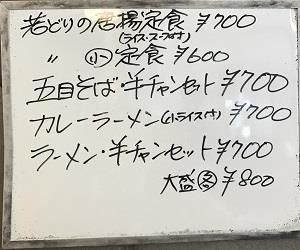 若どりの唐揚定食 ¥700
(ライス・スープ付)
〃 ㊙小 定食 ¥600
五目そば・半チャンセット ¥700
カレーラーメン(小ライス付) ¥700
ラーメン・半チャンセット ¥700
大盛 ¥800